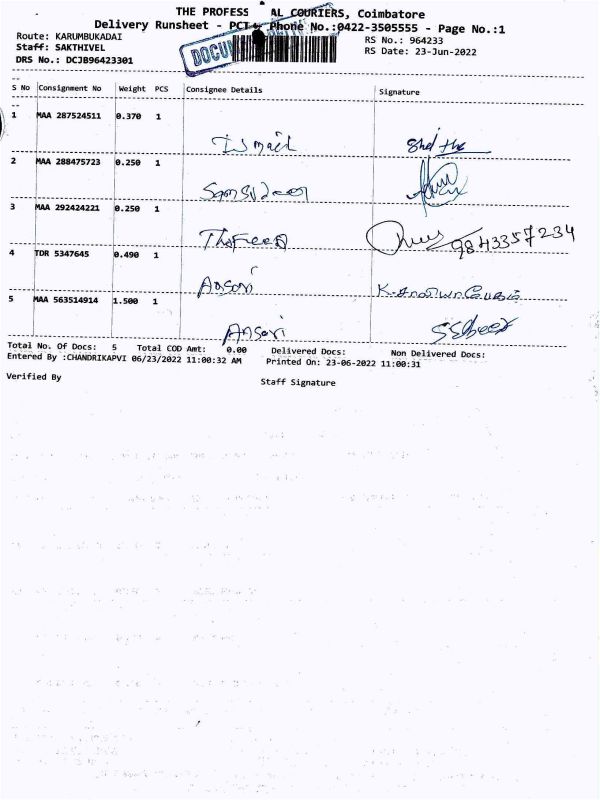 THE PROFESS AL COURIERS, Coimbatore
Delivery Runsheet - PCT Phone No.:0422-3505555 - Page No.:1
Route: KARUMBUKADAI RS No.: 964233
Staff: SAKTHIVEL DOCU RS Date: 23-Jun-2022
DRS No.: DCJB96423301
S No Consignment No Weight PCS Consignee Details Signature
1 MAA 287524511 0.370 1
Ismail
2 MAA 288475723 0.250 1
3 MAA 292424221 0.250 1
Thafeea 9843357234
4 TDR 5347645 0.490 1
Ansari
5 MAA 563514914 1.500 1
Ansari
Total No. Of Docs: 5 Total COD Amt: 0.00 Delivered Docs: Non Delivered Docs:
Entered By :CHANDRIKAPVI 06/23/2022 11:00:32 AM Printed On: 23-06-2022 11:00:31
Verified By Staff Signature